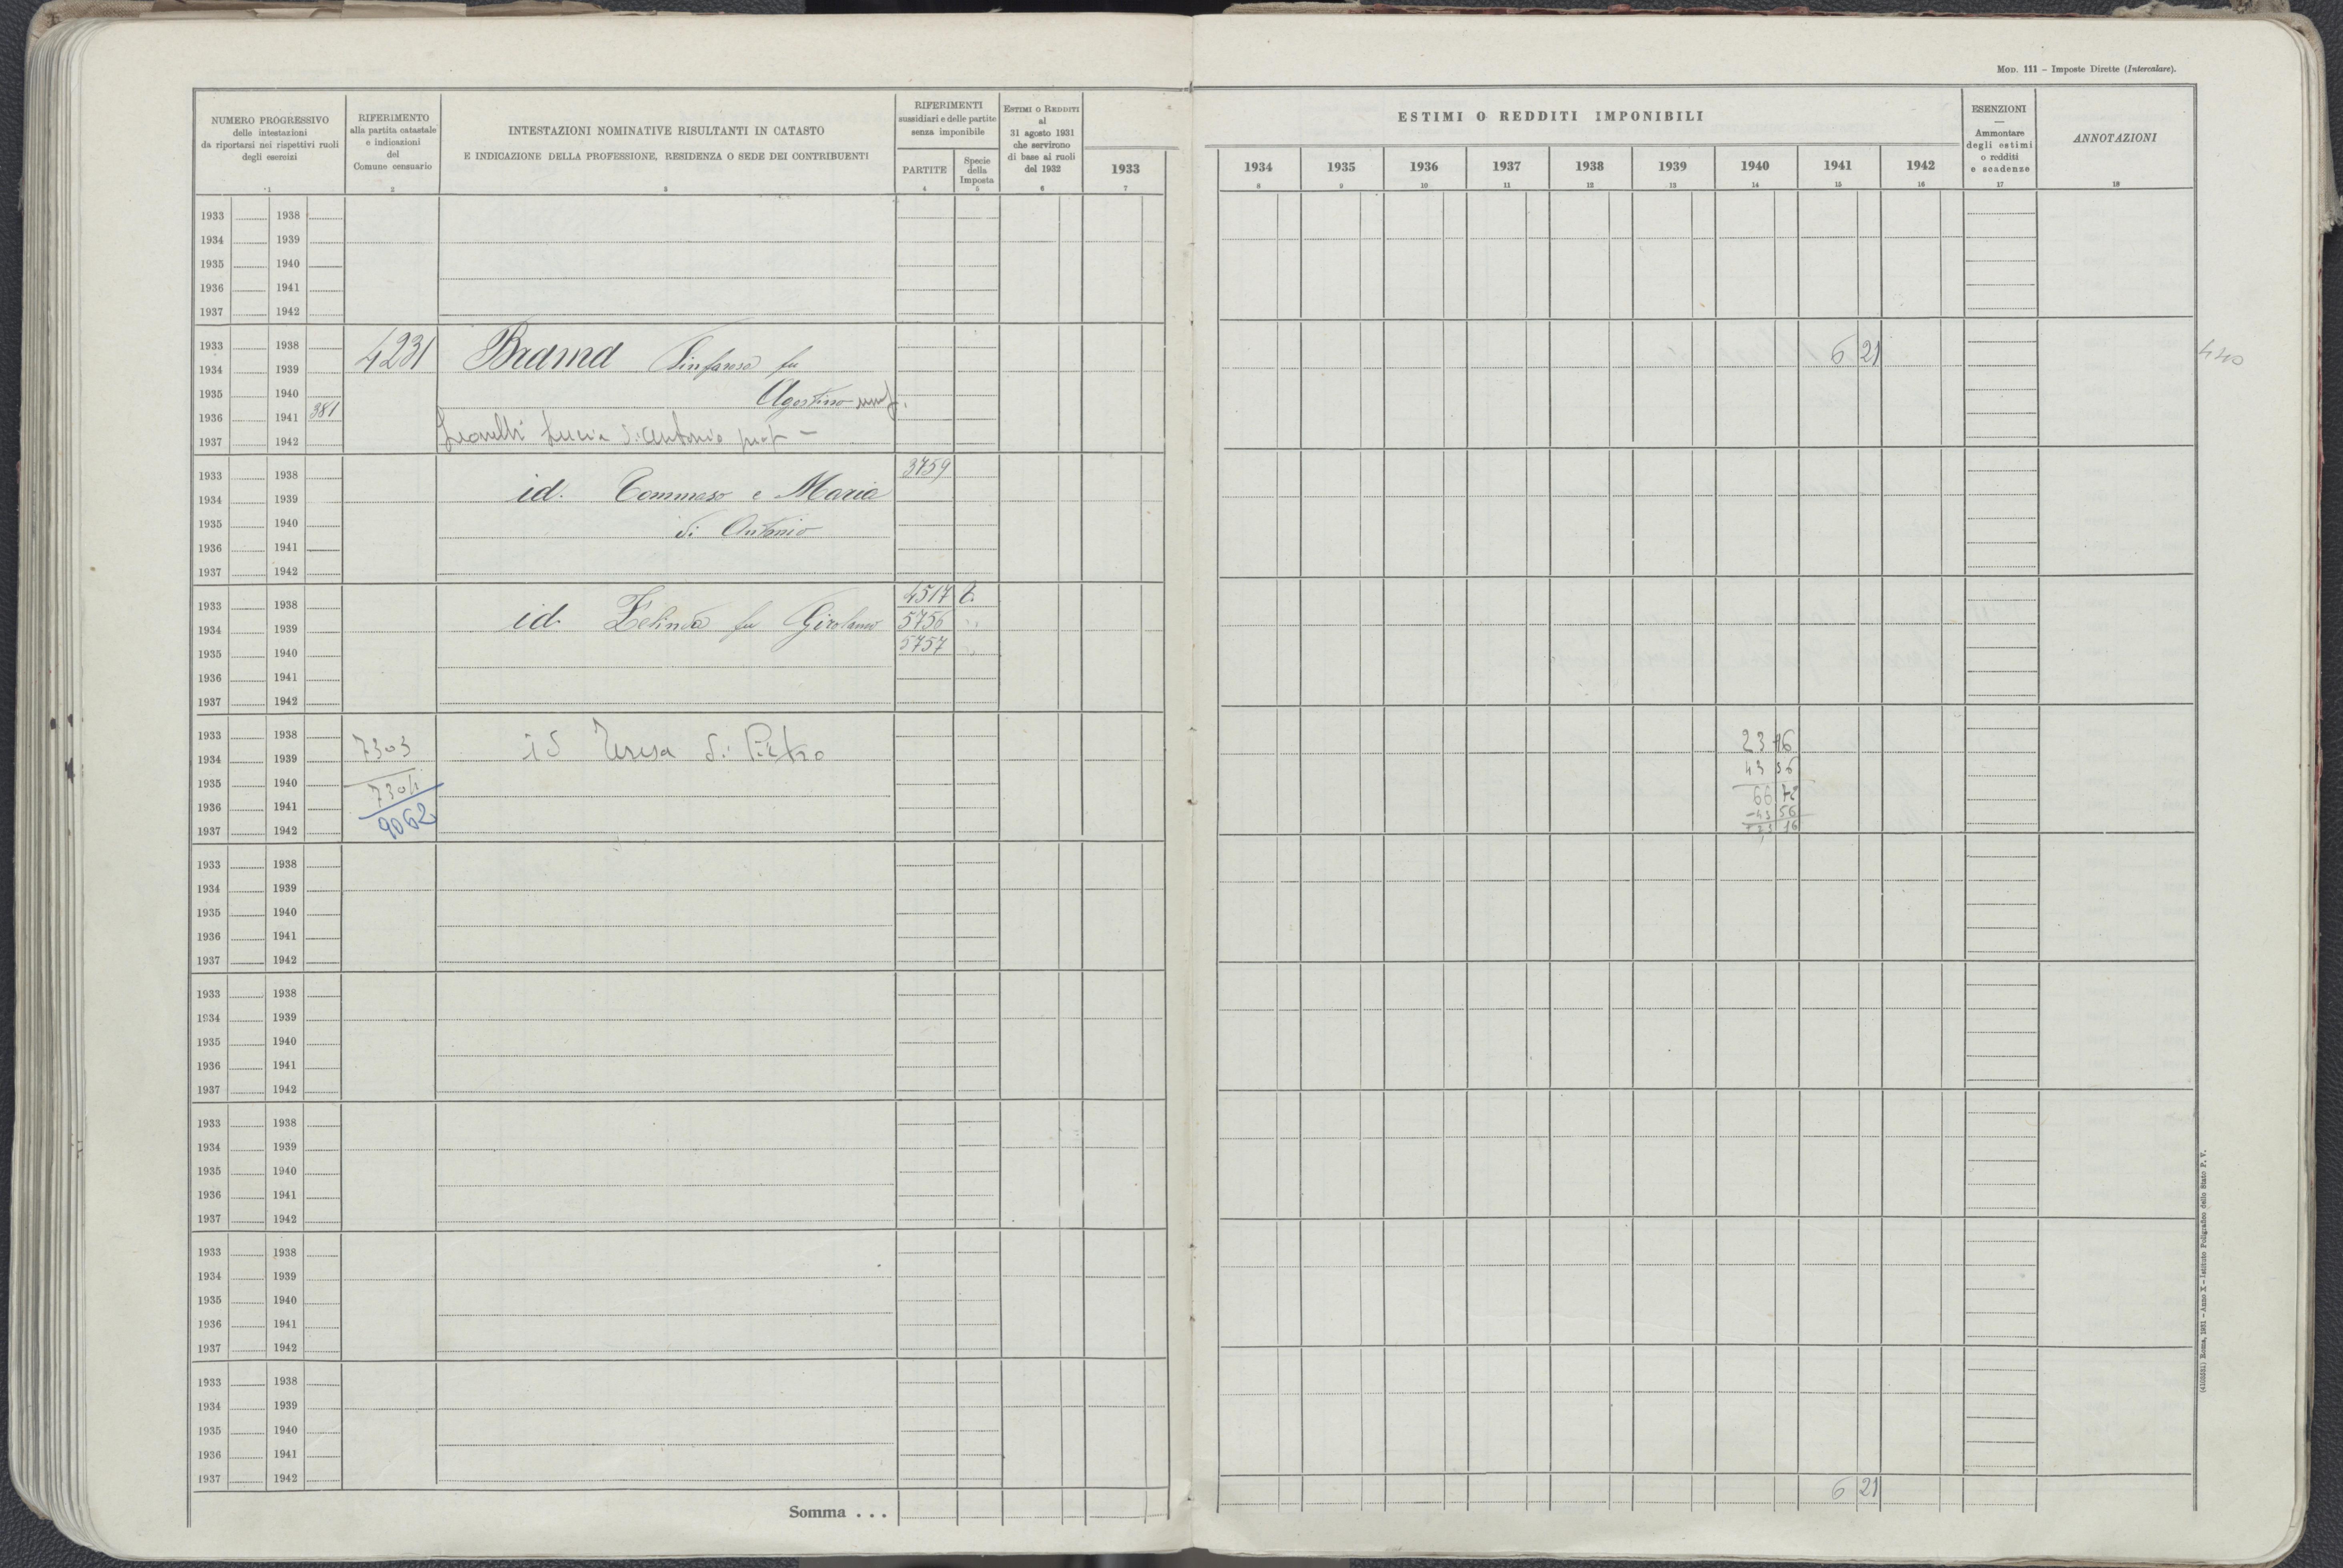 MOD. 111 – Imposte Dirette (Intercalare).
NUMERO PROGRESSIVO
delle intestazioni
da riportarsi nei rispettivi ruoli
degli esercizi
1
RIFERIMENTO
alla partita catastale
e indicazioni
del
Comune censuario
2
INTESTAZIONI NOMINATIVE RISULTANTI IN CATASTO
E INDICAZIONE DELLA PROFESSIONE, RESIDENZA O SEDE DEI CONTRIBUENTI
3
RIFERIMENTI
sussidiari e delle partite
senza imponibile
PARTITE
4
Specie
della
Imposta
5
ESTIMI O REDDITI
al
31 agosto 1931
che servirono
di base ai ruoli
del 1932
6
1933
7
ESTIMI O REDDITI IMPONIBILI
1934 1935 1936 1937 1938 1939 1940 1941 1942
8 9 10 11 12 13 14 15 16
ESENZIONI
—
Ammontare
degli estimi
o redditi
e scadenze
17
ANNOTAZIONI
18
1933 1938
1934 1939
1935 1940
1936 1941
1937 1942
1933 1938
4231 Brama Sinfarosa fu 6 21 440
1934 1939
1935 1940 Agostino
1936 1941 381
1937 1942 Lucia di Antonio
1933 1938 3759
1934 1939 id. Tommaso e Maria
1935 1940 di Antonio
1936 1941
1937 1942
1933 1938 4517
1934 1939 id. Zelinda fu Girolamo 5756 "
1935 1940 5757 "
1936 1941
1937 1942
1933 1938 7303 id Teresa di Pietro 23 16
1934 1939 43 56
1935 1940 7304
1936 1941 66 72
9062 -43 56
1937 1942 23 16
1933 1938
1934 1939
1935 1940
1936 1941
1937 1942
1933 1938
1934 1939
1935 1940
1936 1941
1937 1942
1933 1938
1934 1939
1935 1940
1936 1941
1937 1942
1933 1938
1934 1939
1935 1940
1936 1941
1937 1942
1933 1938
1934 1939
1935 1940
1936 1941
1937 1942
Somma . . . 6 21
(4103551) Roma, 1931 – Anno X – Istituto Poligrafico dello Stato P. V.